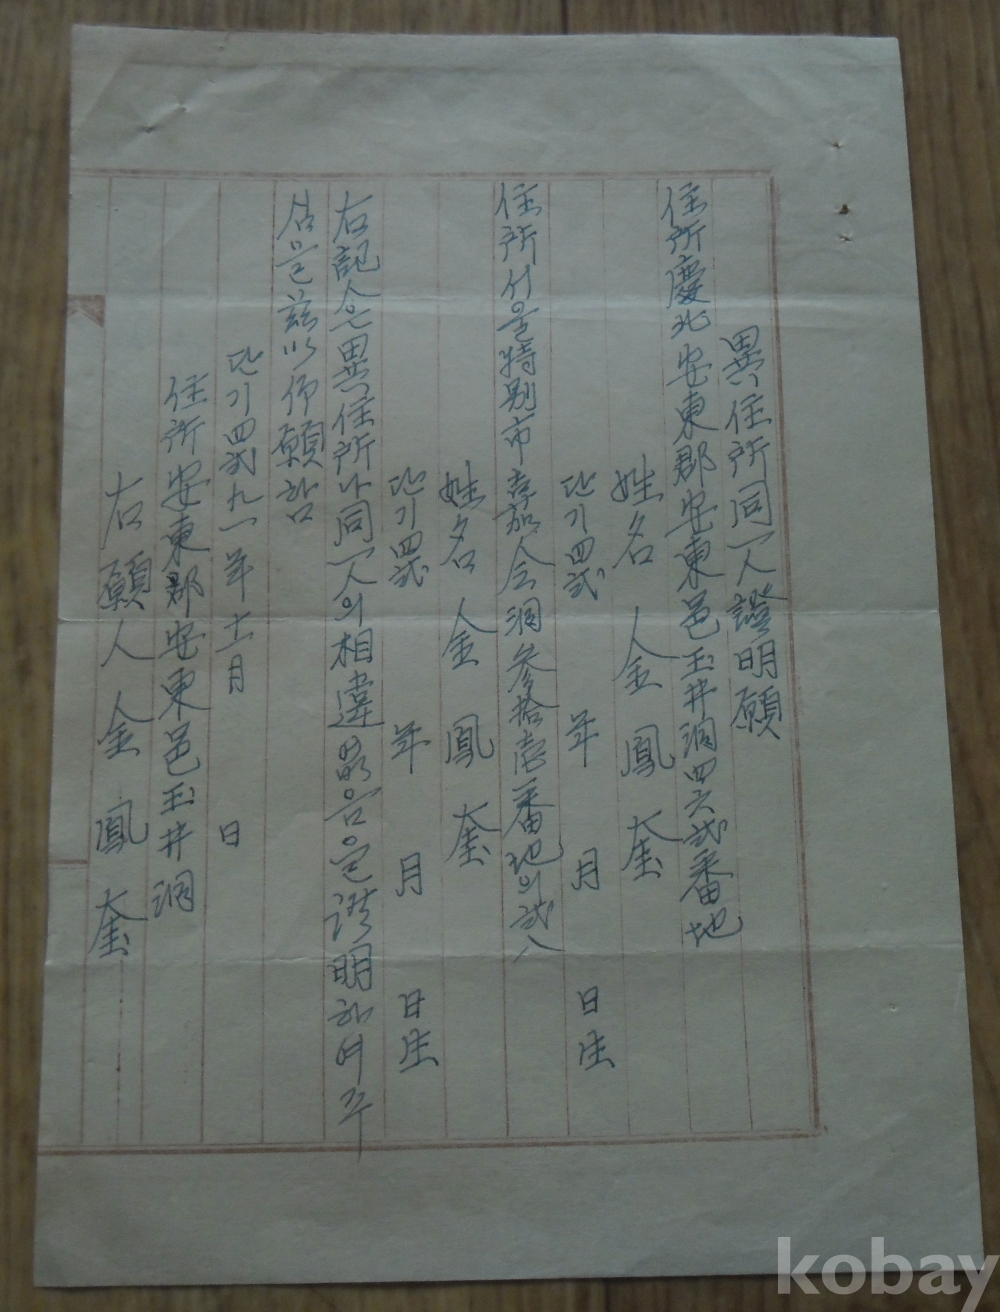 異住所同一人證明願
住所慶北安東郡安東邑玉井洞四六貳番地
姓名 金鳳奎
단기四貳 年 月 日生
住所서울特別市 會洞參拾壹番地의貳八
姓名 金鳳奎
단기四貳 年 月 日生
右記人은異住所나同一人의相違없음을證明하여주
심을玆以仰願함
단기四貳九一年十一月 日
住所安東郡安東邑玉井洞
右願人 金鳳奎
kobay